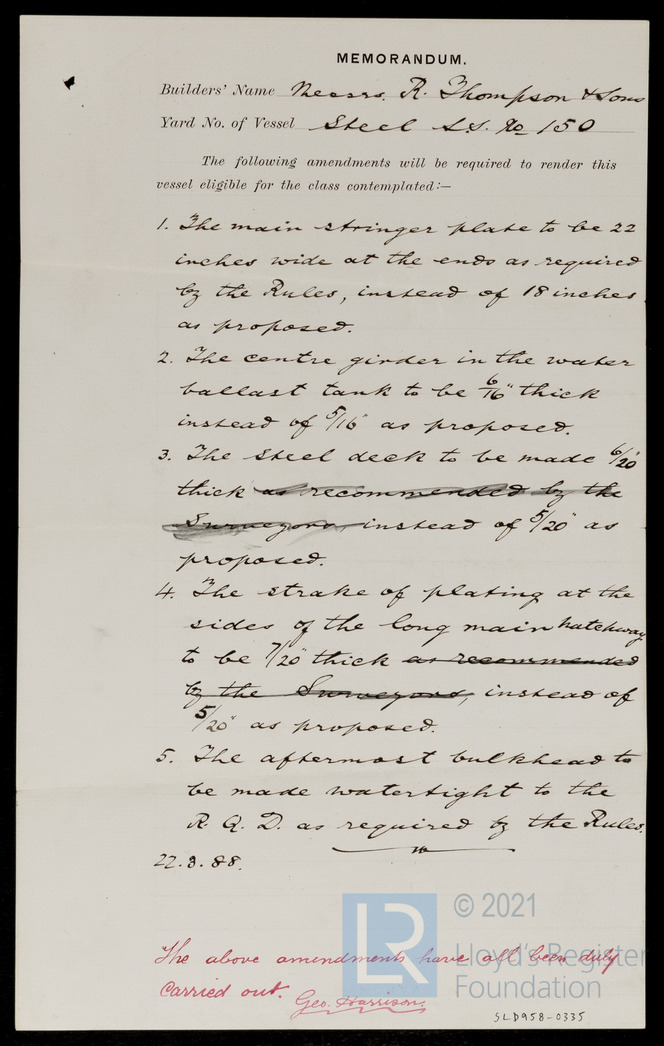 MEMORANDUM.
Builders' Name Messrs. R. Thompson & Sons
Yard No. of Vessel Steel S.S. No 150
The following amendments will be required to render this
vessel eligible for the class contemplated:—
1. The main stringer plate to be 22
inches wide at the ends as required
by the Rules, instead of 18 inches
as proposed.
2. The centre girder in the water
ballast tank to be 6/16" thick
instead of 5/16" as proposed.
3. The steel deck to be made 6/20"
thick as recommended by the
Surveyors, instead of 5/20" as
proposed.
4. The strake of plating at the
sides of the long main hatchway
to be 7/20" thick as recommended
by the Surveyors, instead of
5/20" as proposed.
5. The aftermost bulkhead to
be made watertight to the
R. Q. D. as required by the Rules.
22.3.88.
The above amendments have all been duly
carried out. Geo. Harrison.
LR © 2021
Lloyd's Register
Foundation
SLD958-0335